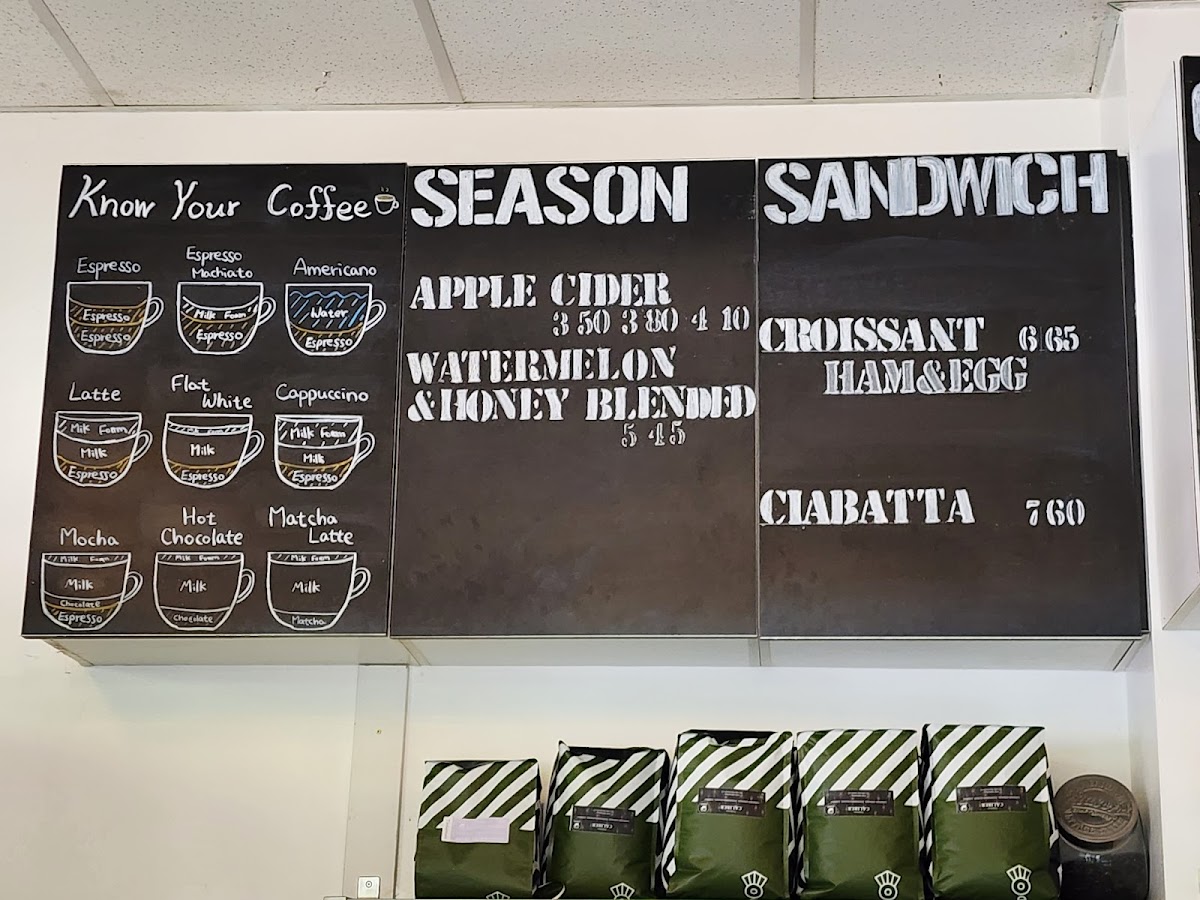 Know Your Coffee
Espresso
Espresso
Espresso
Espresso
Machiato
Milk Foam
Espresso
Americano
Water
Espresso
Latte
Milk Foam
Milk
Espresso
Flat
White
Milk Foam
Milk
Espresso
Cappuccino
Milk Foam
Milk
Espresso
Mocha
Milk Foam
Milk
Chocolate
Espresso
Hot
Chocolate
Milk Foam
Milk
Chocolate
Matcha
Latte
Milk Foam
Milk
Matcha
SEASON
APPLE CIDER
3 50 3 80 4 10
WATERMELON
&HONEY BLENDED
5 45
SANDWICH
CROISSANT 6 65
HAM&EGG
CIABATTA 7 60
CALIBER
CALIBER
CALIBER
CALIBER